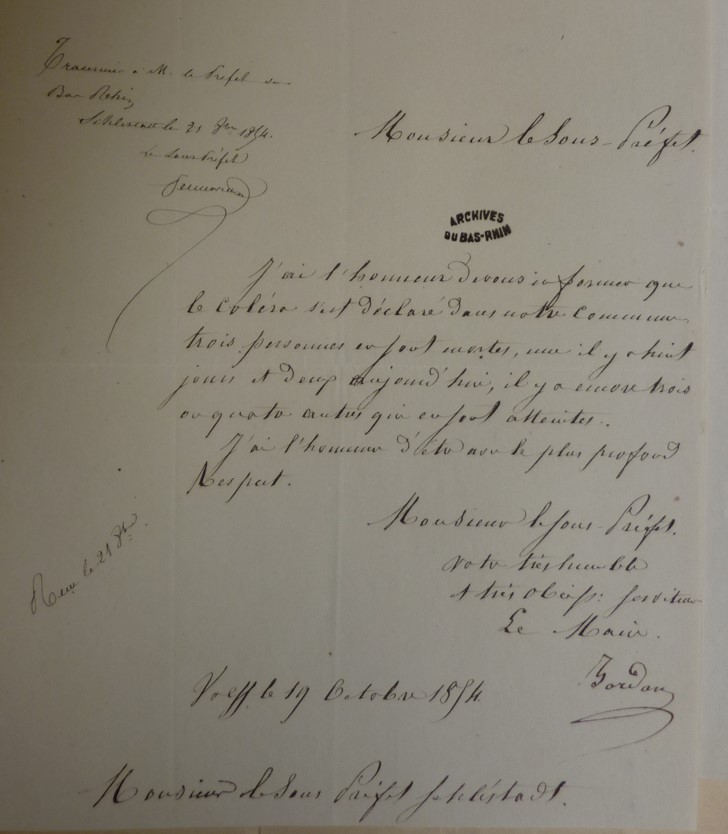 Transmis à M. le Préfet du
Bas Rhin
Schlestadt le 21 8bre 1854.
Le Sous Préfet
Monsieur le Sous-Préfet.
ARCHIVES
DU BAS-RHIN
J'ai l'honneur de vous informer que
le coléra s'est déclaré dans notre commune
trois personnes en sont mortes, une il y a huit
jours et deux aujourd'hui, il y a encore trois
ou quatre autres qui en sont atteintes.
J'ai l'honneur d'être avec le plus profond
Respect.
Monsieur le sous-Préfet.
votre très humble
et très obéiss: serviteur
Le Maire.
Reçu le 21 8bre
le 19 Octobre 1854.
Monsieur le Sous Préfet Schléstadt.